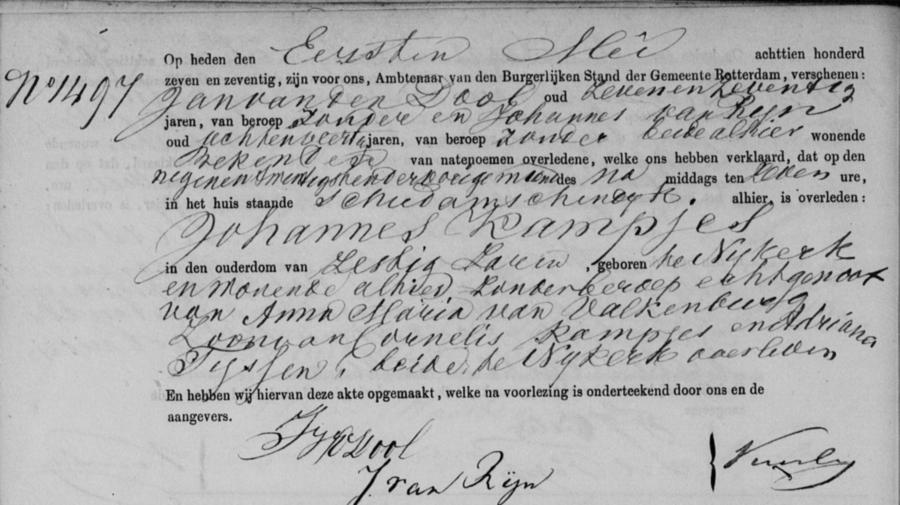 Op heden den Eersten Mei achttien honderd
No 1497
zeven en zeventig, zijn voor ons, Ambtenaar van den Burgerlijken Stand der Gemeente Rotterdam, verschenen:
Jan van den Dool oud Zevenenzeventig
jaren, van beroep Zonder en Johannes van Rijn
oud achtenveertig jaren, van beroep Zonder beide alhier wonende
Bekenden van natenoemen overledene, welke ons hebben verklaard, dat op den
negenentwintigsten der vorige maand des na middags ten Zeven ure,
in het huis staande Schiedamschendyk. alhier, is overleden:
Johannes Kampjes
in den ouderdom van Zestig Jaren, geboren te Nijkerk
en wonende alhier Zonder beroep echtgenoot
van Anna Maria van Valkenburg
Zoon van Cornelis Kampjes en Adriana
Tijssen, beide te Nijkerk overleden
En hebben wij hiervan deze akte opgemaakt, welke na voorlezing is onderteekend door ons en de
aangevers.
Dool
J van Rijn